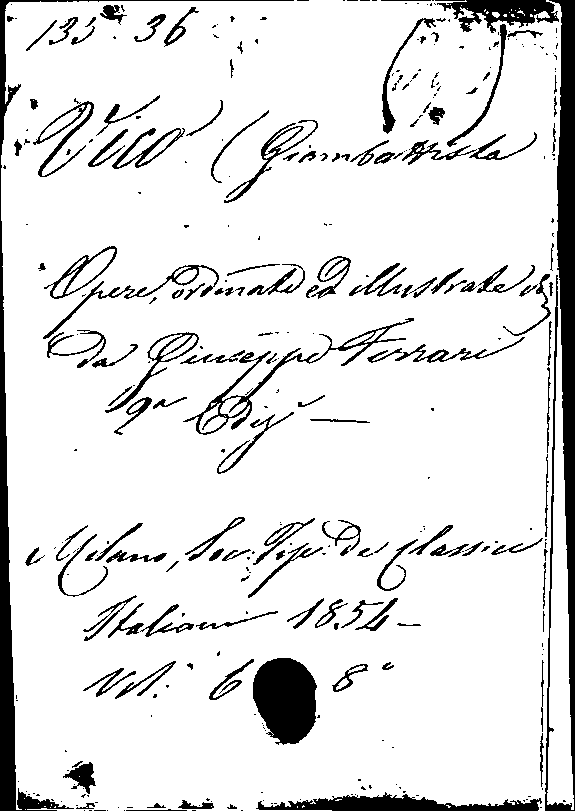 135. 36
Vico (Giambattista
Opere, ordinate ed illustrate
da Giuseppe Ferrari
2a Ediz. —
Milano, Soc. Tip. de Classici
Italiani 1854 –
Vol. 6 8°